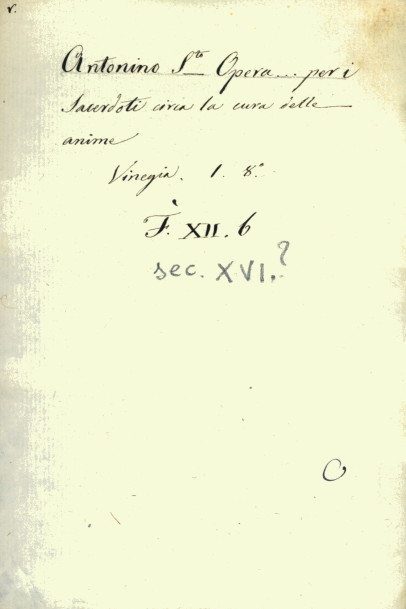 v.
Antonino S.to Opera... per i
Sacerdoti circa la cura delle
anime
Vinegia. 1. 8.°
F. XII. 6
sec. XVI.?
C